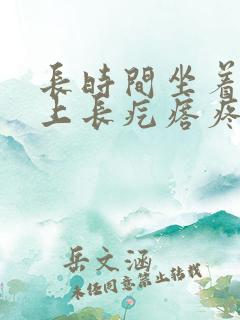 長時間坐着
上長疙瘩疼
岳文涵
未经同意禁止转载